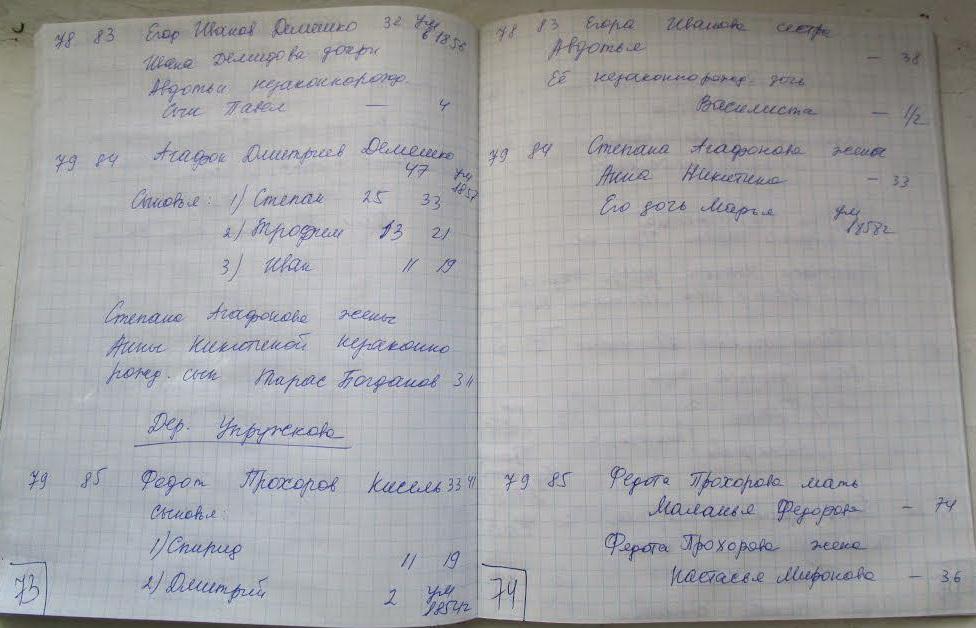 78 83 Егор Иванов Демешко 32 ум
в 1856
Ивана Демидова дочери
Авдотьи незаконнорожд.
Сын Павел — 4
79 84 Агафон Дмитриев Демешко
47 ум
1857
Сыновья: 1) Степан 25 33
2) Трофим 13 21
3) Иван 11 19
Степана Агафонова жены
Анны Никитиной незаконно
рожд. сын Тарас Богданов 3 11
Дер. Упружкова
79 85 Федот Прохоров Кисель 33 41
Сыновья:
1) Спирид 11 19
2) Дмитрий 2 ум
1854г
73
78 83 Егора Иванова сестра
Авдотья — 38
Её незаконнорожд. дочь
Василиста — 1/2
79 84 Степана Агафонова жены
Анна Никитина — 33
Его дочь Марья ум
1858г
79 85 Федота Прохорова мать
Маланья Федорова — 74
Федота Прохорова жена
Настасья Миронова — 36
74